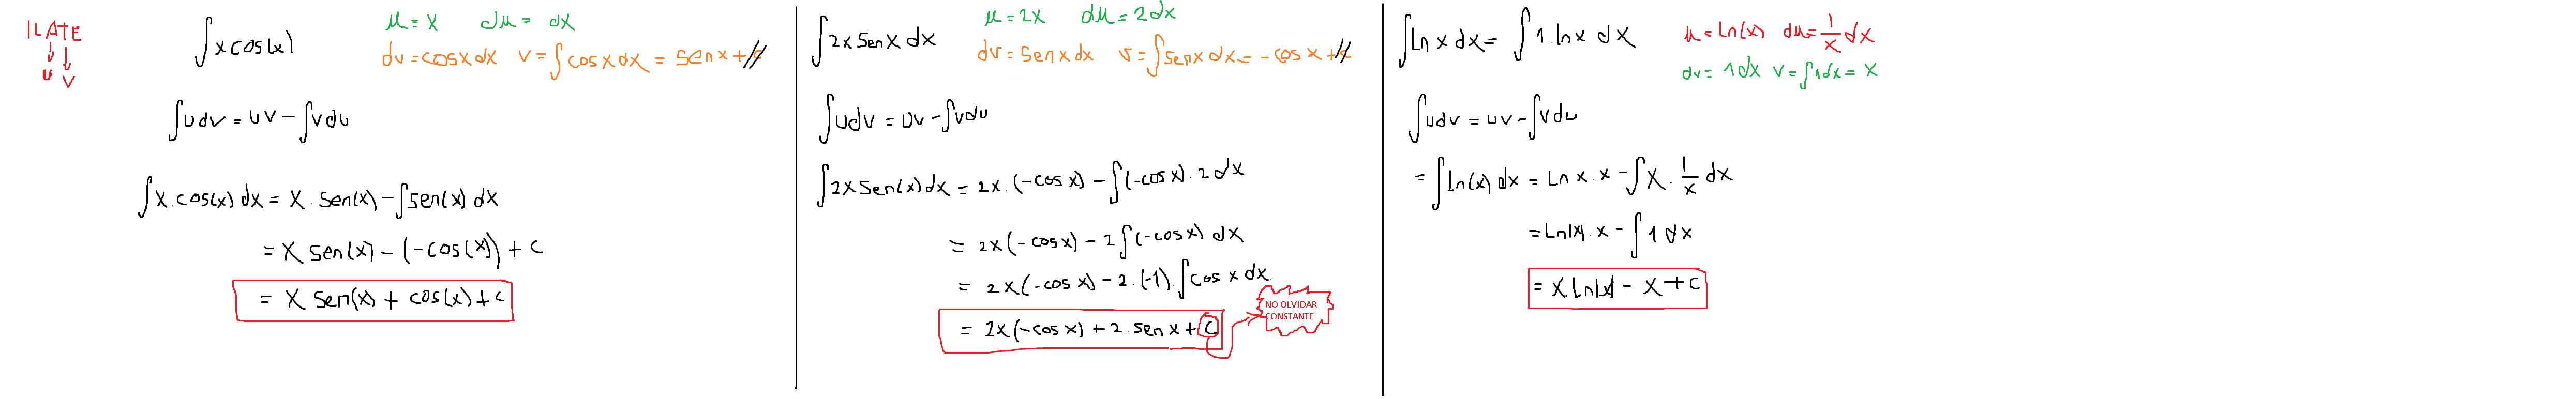 ILATE
u v
∫x cos(x)
u = x du = dx
dv = cosx dx v = ∫cosx dx = senx + c
∫u dv = uv - ∫v du
∫x.cos(x) dx = x.sen(x) - ∫sen(x) dx
= x sen(x) - (-cos(x)) + c
= x sen(x) + cos(x) + c
∫2x senx dx
u = 2x du = 2dx
dv = senx dx v = ∫senx dx = -cosx + c
∫udv = uv - ∫vdu
∫2x sen(x) dx = 2x.(-cosx) - ∫(-cosx).2dx
= 2x(-cosx) - 2∫(-cosx) dx
= 2x(-cosx) - 2.(-1).∫cosx dx
= 2x(-cosx) + 2.senx + c
NO OLVIDAR
CONSTANTE
∫Ln x dx = ∫1.lnx dx
u = Ln(x) du = 1/x dx
dv = 1dx v = ∫1dx = x
∫udv = uv - ∫vdu
= ∫Ln(x) dx = Lnx.x - ∫x.1/x dx
= Ln|x|.x - ∫1dx
= x Ln|x| - x + c